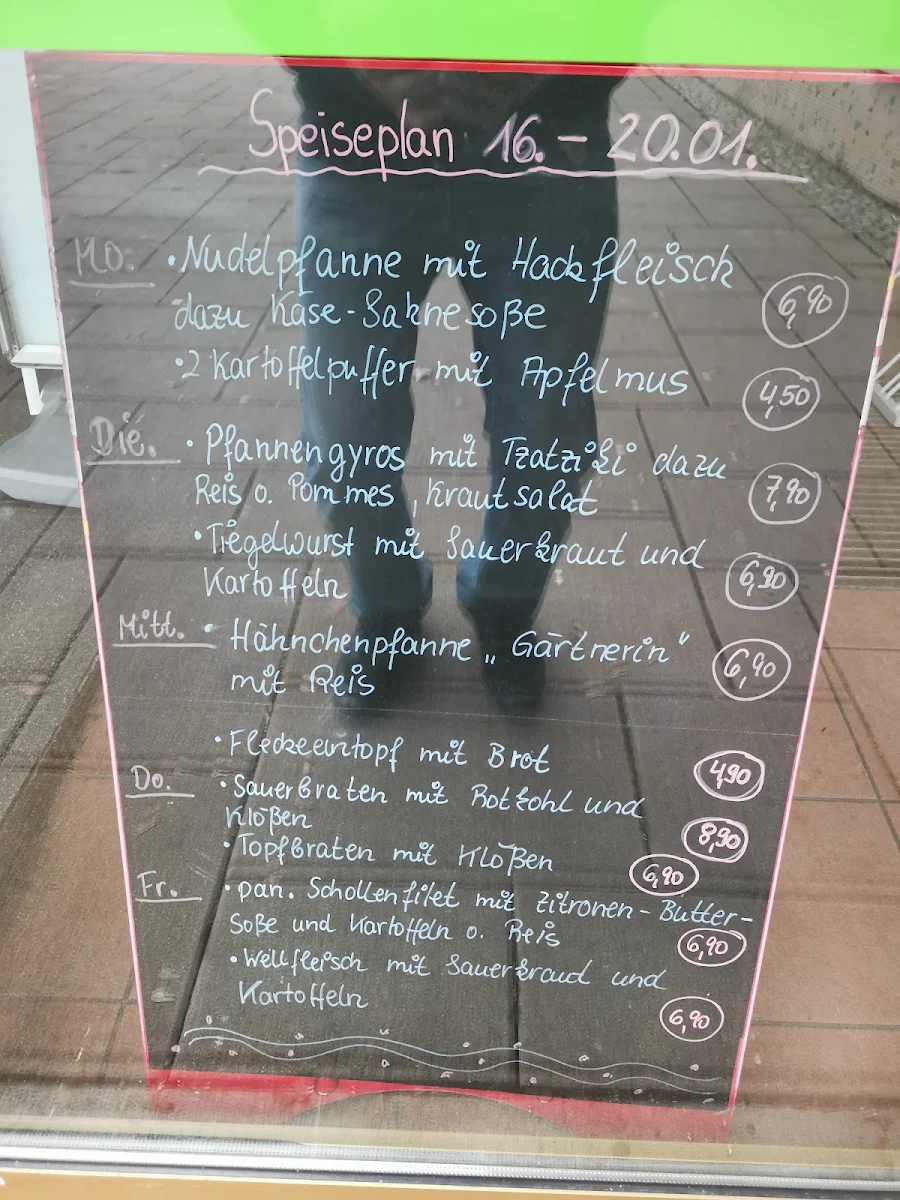 Speiseplan 16. - 20.01.
Mo: • Nudelpfanne mit Hackfleisch
dazu Käse-Sahnesoße 6,90
• 2 Kartoffelpuffer mit Apfelmus 4,50
Die. • Pfannengyros mit Tzatziki dazu
Reis o. Pommes, Krautsalat 7,90
• Tiegelwurst mit Sauerkraut und
Kartoffeln 6,90
Mitt. • Hähnchenpfanne „Gärtnerin"
mit Reis 6,90
• Fleckeeintopf mit Brot 4,90
Do. • Sauerbraten mit Rotkohl und
Klößen 8,90
• Topfbraten mit Klößen 6,90
Fr. • pan. Schollenfilet mit Zitronen-Butter-
soße und Kartoffeln o. Reis 6,90
• Wellfleisch mit Sauerkraut und
Kartoffeln 6,90